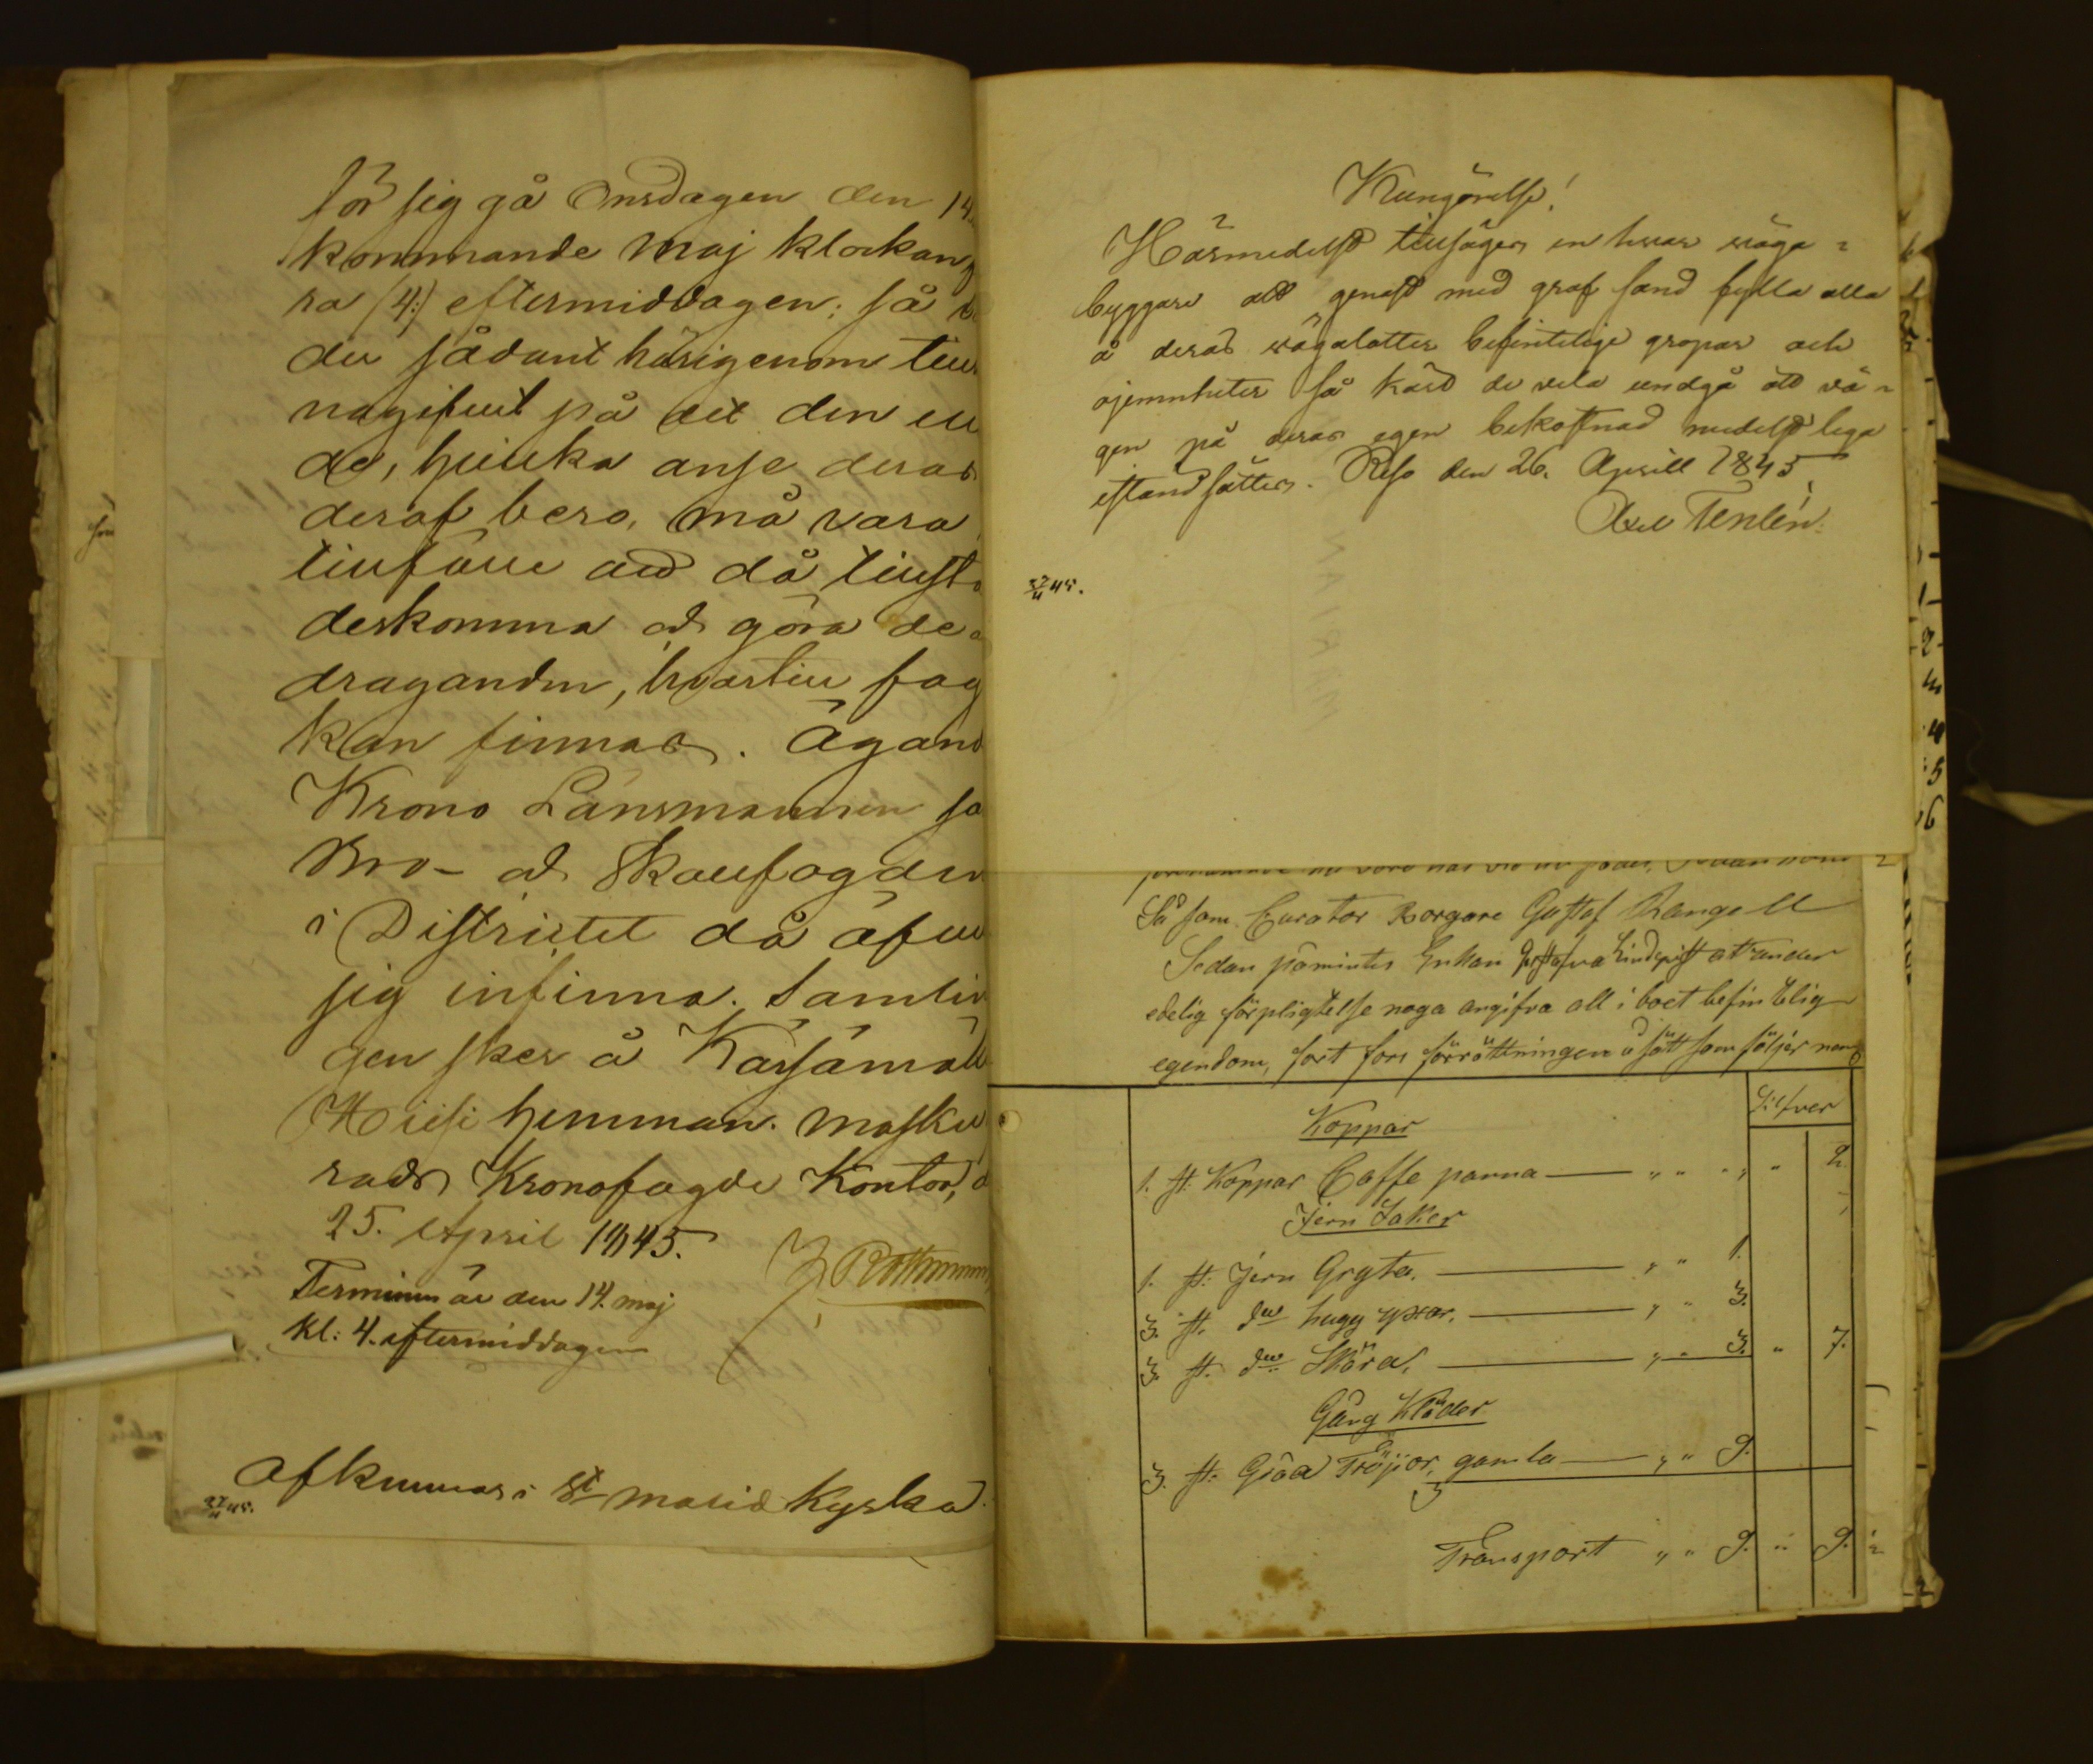 för sig gå Onsdagen den 14
kommande Maj klockan
ra (4:) eftermiddagen; så
der sådant härigenom till
nagifvit på det den
de, hvilka anse deras
deraf bero, må vara
tillfälle att då tillst
deskomma och göra de
draganden, hvartill fog
kan finnas. Ägand
Krono Länsmannen sa
Bro- och Skallfogden
i Districtet då äfven
sig infinna. Samlin
gen sker å Karsamäk
Hiisi hemman. Masku
rads Kronofogde Kontor,
25. April 1845.
Terminen är den 14. maj
kl: 4. eftermiddagen
afkunnas i St Marie Kyrka
27/4 45.
Kungörelse!
Härmedelst tillsäges en hvar väga-
byggare att genast med grof sand fylla alla
å deras vägalotter befintelige gropar och
ojemnheter så kärt de vela undgå att vä-
gen på deras egen bekostnad medelst lega
istandsättes. Reso den 26. Aprill 1845
Axel Tenlén
27/4 45.
Så som Curator Borgare Gustaf
Sedan påmintes Enkan Lindqvist at under
edelig förpligtelse noga angifva all i boet befintelig
egendom, fort fors förrättningen å sätt som följer nem
Silfver
Koppar
1. st. Koppar Caffe panna — „ „ „ „ 2.
Jern Saker
1. st. Jern Gryta. — „ „ 1.
3. st. do hugg yxor. — „ „ 3.
3. st. do Skäror. — „ „ 3. „ 7.
Gång Kläder
3. st. Gråa Tröjor, gamla — „ „ 9.
Transport „ „ 9. „ 9.